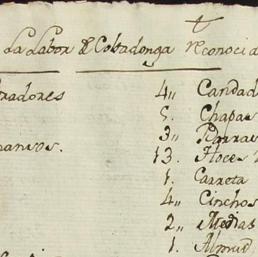 La Labor de Cobadonga reconocid
tradores
4,, Candad
5. Chapas
3,, Barras
13. Hoces
1. Carreta
4,, Cinchos
2,, Medias
1. Almud